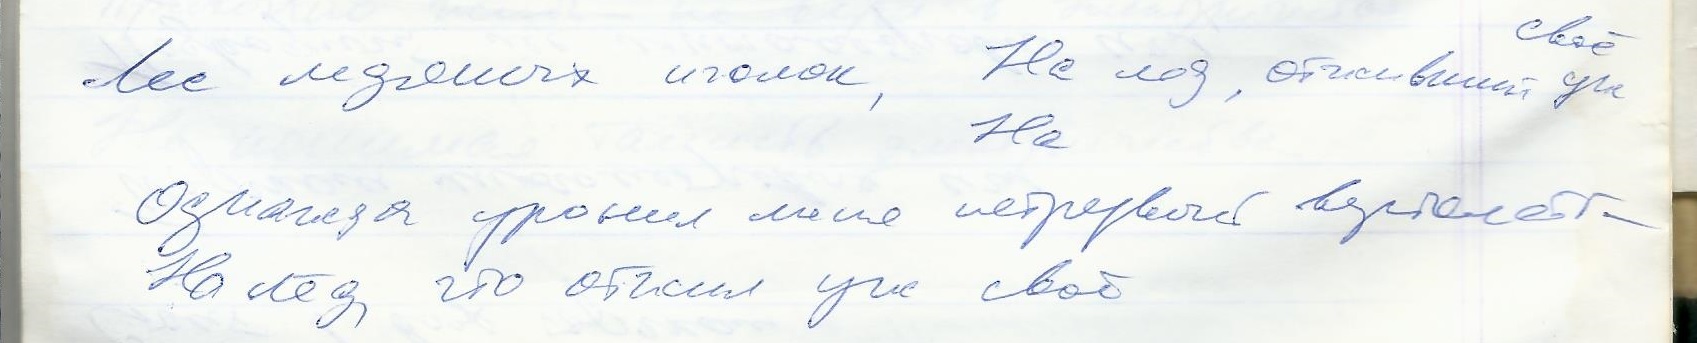 своё
Лес ледяных иголок, На лёд, отживший уж
На
Однажды уронил меня нетрезвый вертолёт
На лёд, что отжил уж своё